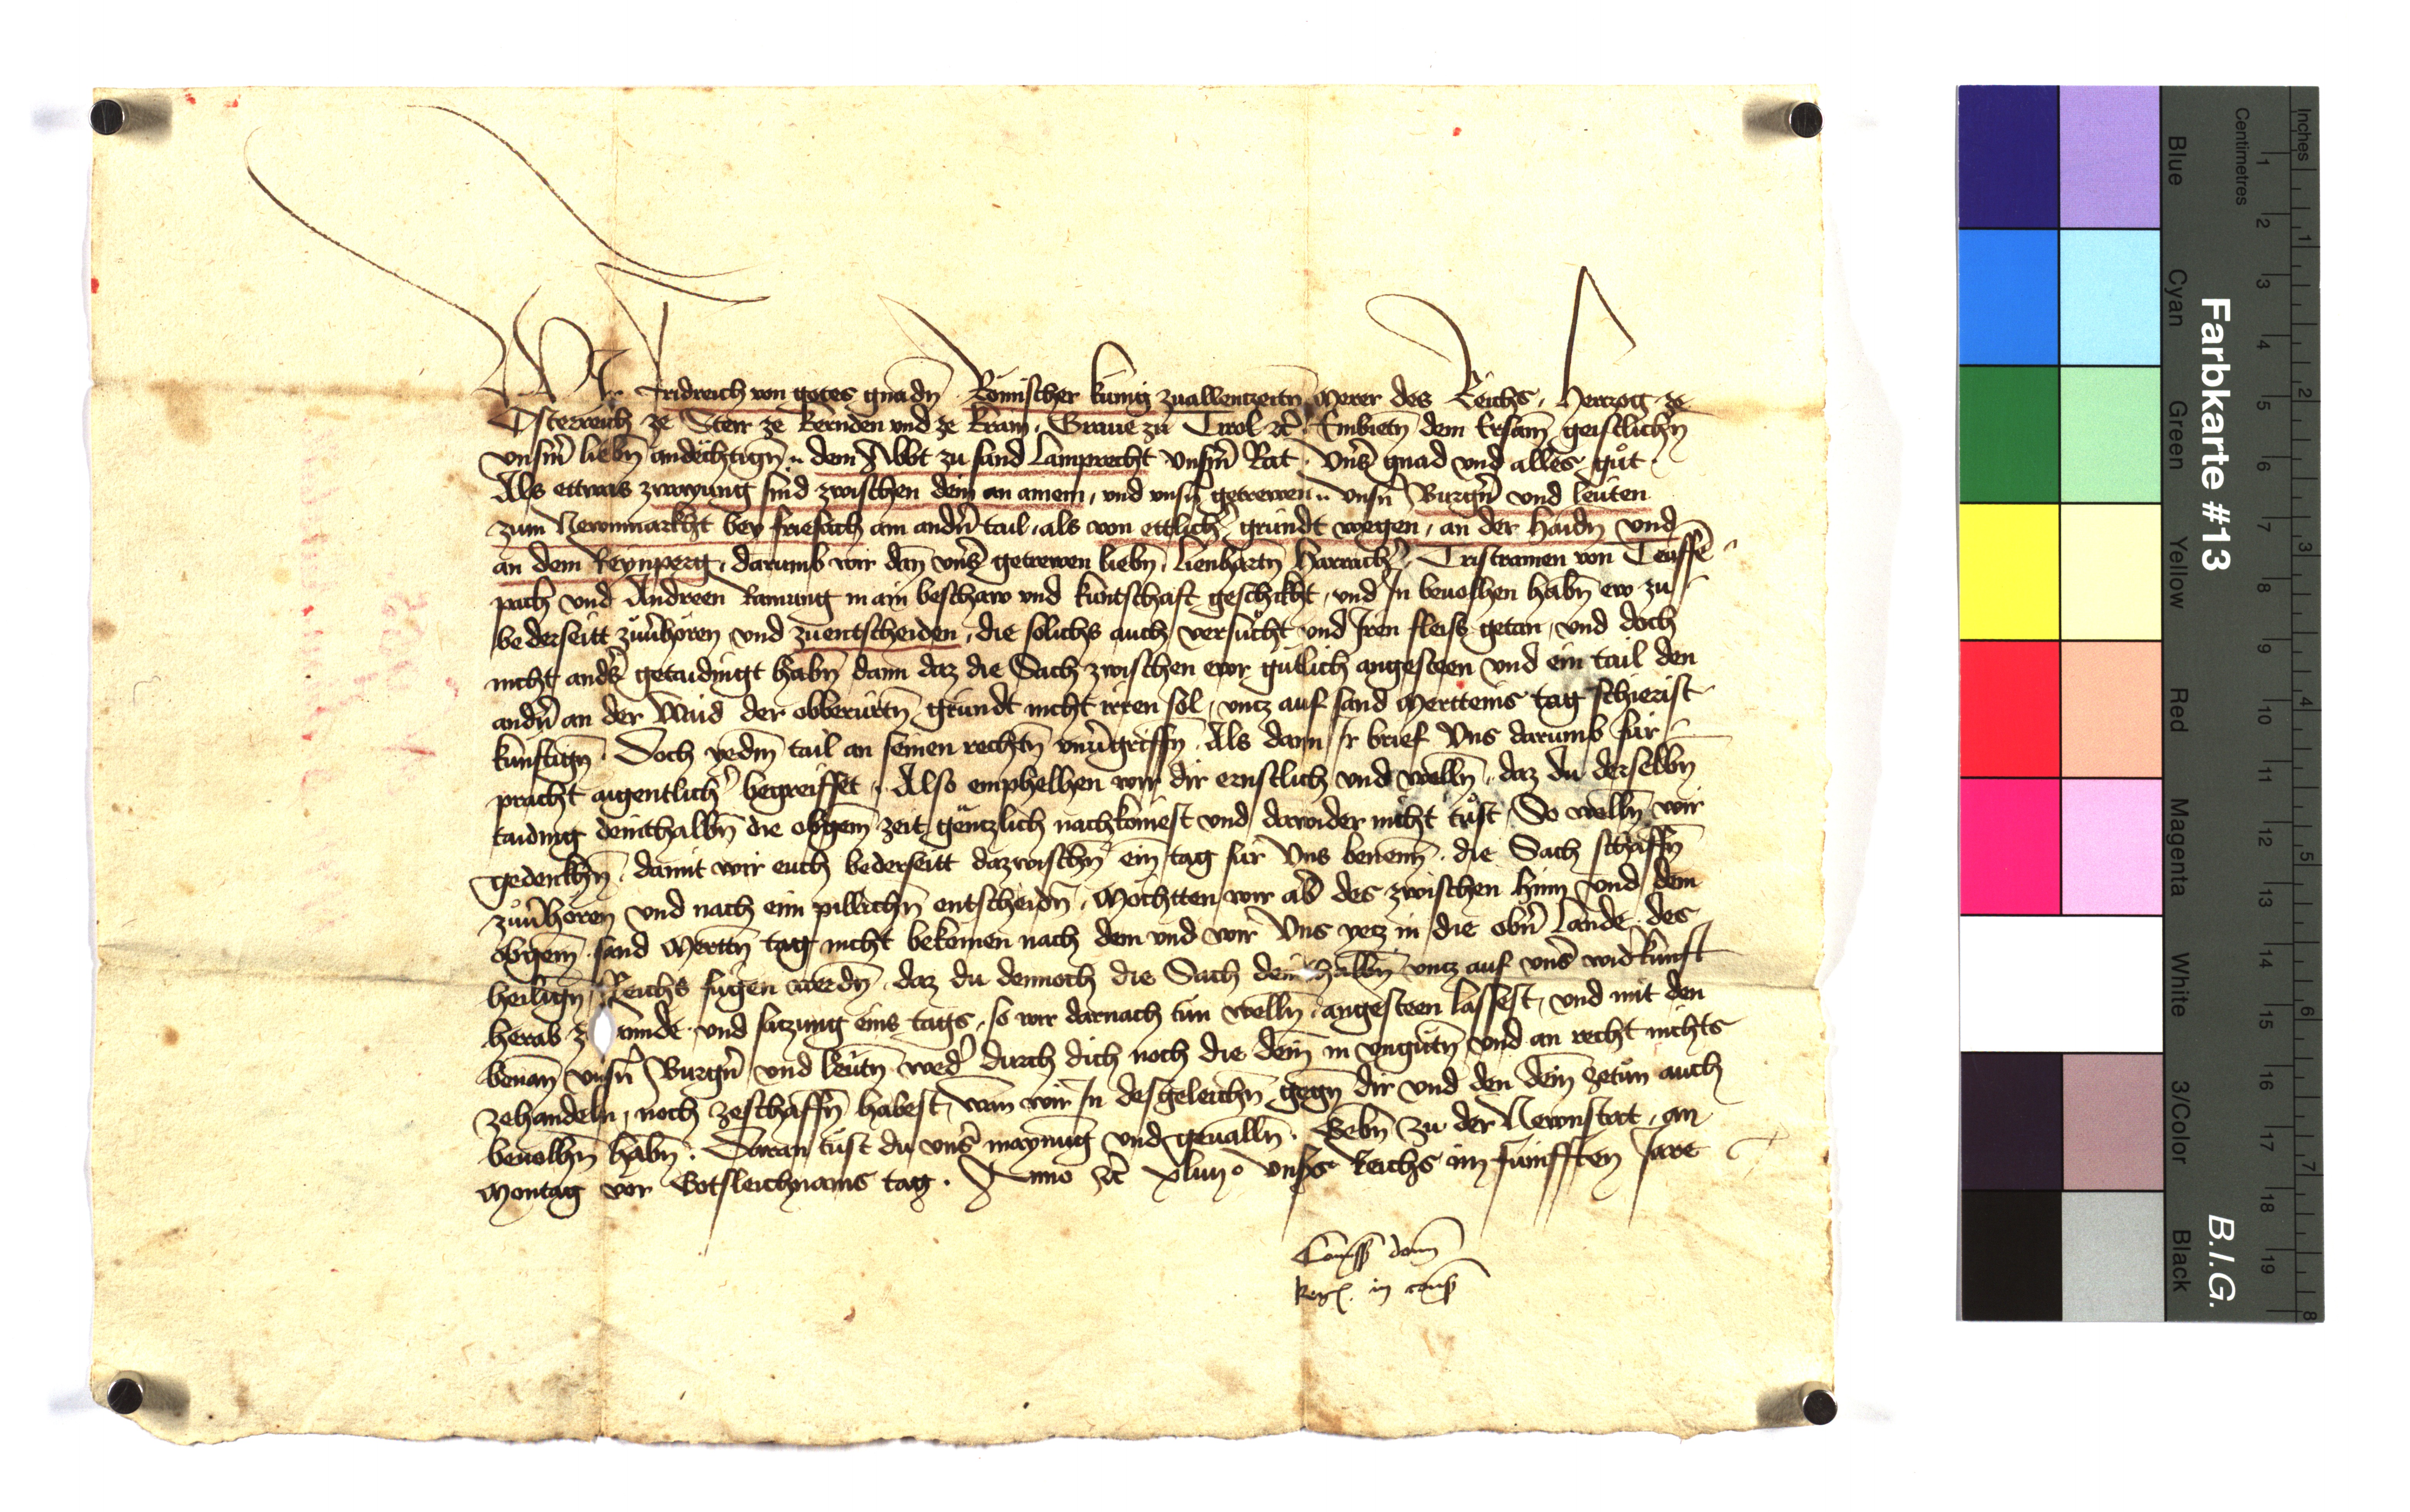 Wir Fridreich von gotes gnadn Römischer kunig zuallenzeitn merer des Reichs, Herczog ze
Österreich ze Steir ze Kernden und ze Krain, Graue zu Tirol etc. Embietn dem Ersam geistlichn
vnsm liebn andechtign .. dem Abbt zu sand Lamprecht vnsm Rat. Vns gnad vnd alles gůt.
Als ettwas zwayung sind zwischen dein an ainem, vnd vnsn getrewen .. vnsn Burgn vnd leuten
zum Newnmarkht bey friesach am andn tail, als von ettlich gründt wegen, an der Haidn vnd
an dem Reynperg, darumb wir dan vns getrewen liebn, Lienhartn Harracher, Tristramen von Teuffe
pach vnd Andreen Ramung in ain beschaw vnd kuntschaft geschikht, vnd In beuolhen habn ew zu
bederseitt zuuerhören vnd zuentscheiden, die solichs auch versucht vnd Iren fleiss getan, vnd doch
nicht anders getaidingt habn dann daz die Sach zwischen ewr gütlich angesteen vnd ein tail den
andn an der Waid der obberürtn gründt nicht irren sol, vntz auf sand Merteins tag schierist
kunftign. Doch yedm tail an seinen rechtn vnuergriffn. Als dann Ir brief Vns darumb für
pracht aigentlich begreiffet. Also emphelhen wir dir ernstlich vnd welln, daz du derselbn
taiding deinthalbn die obgem zeit gentzlich nachkömest vnd dawider nicht tust, So welln wir
gedenkhn, damit wir euch bederseitt dazwischn ein tag für Vns benenn, die Sach schaffn
zuuerhören vnd nach eim pillichn entscheidn, Möchtten wir ab des zwischen hinn vnd dem
obgem. sand Merttn tag nicht bekömen nach dem vnd wir Vns yetz in die obn Lande des
heilign Reichs fugen werdn, daz du dennoch die Sach dein halbn vntz auf vns widerkunft
herab z lannde vnd satzung eins tags, so wir darnach tun welln angesteen lassest, vnd mit den
benan vnsn Burgn vnd leutn wed durch dich noch die dein in vngutn vnd an recht nichts
zehandeln, noch zeschaffn habest, wan wir In desgeleichn gegn dir vnd den dein zetun auch
beuolhn habn. Daran tust du vns maynung vnd geualln. Gebn zu der Newnstat, an
Montag vor Gotsleichnams tag. Anno etc. xliiijo vnsers Reichs im fünfften Jare
Comissio domini
Regis in consilio